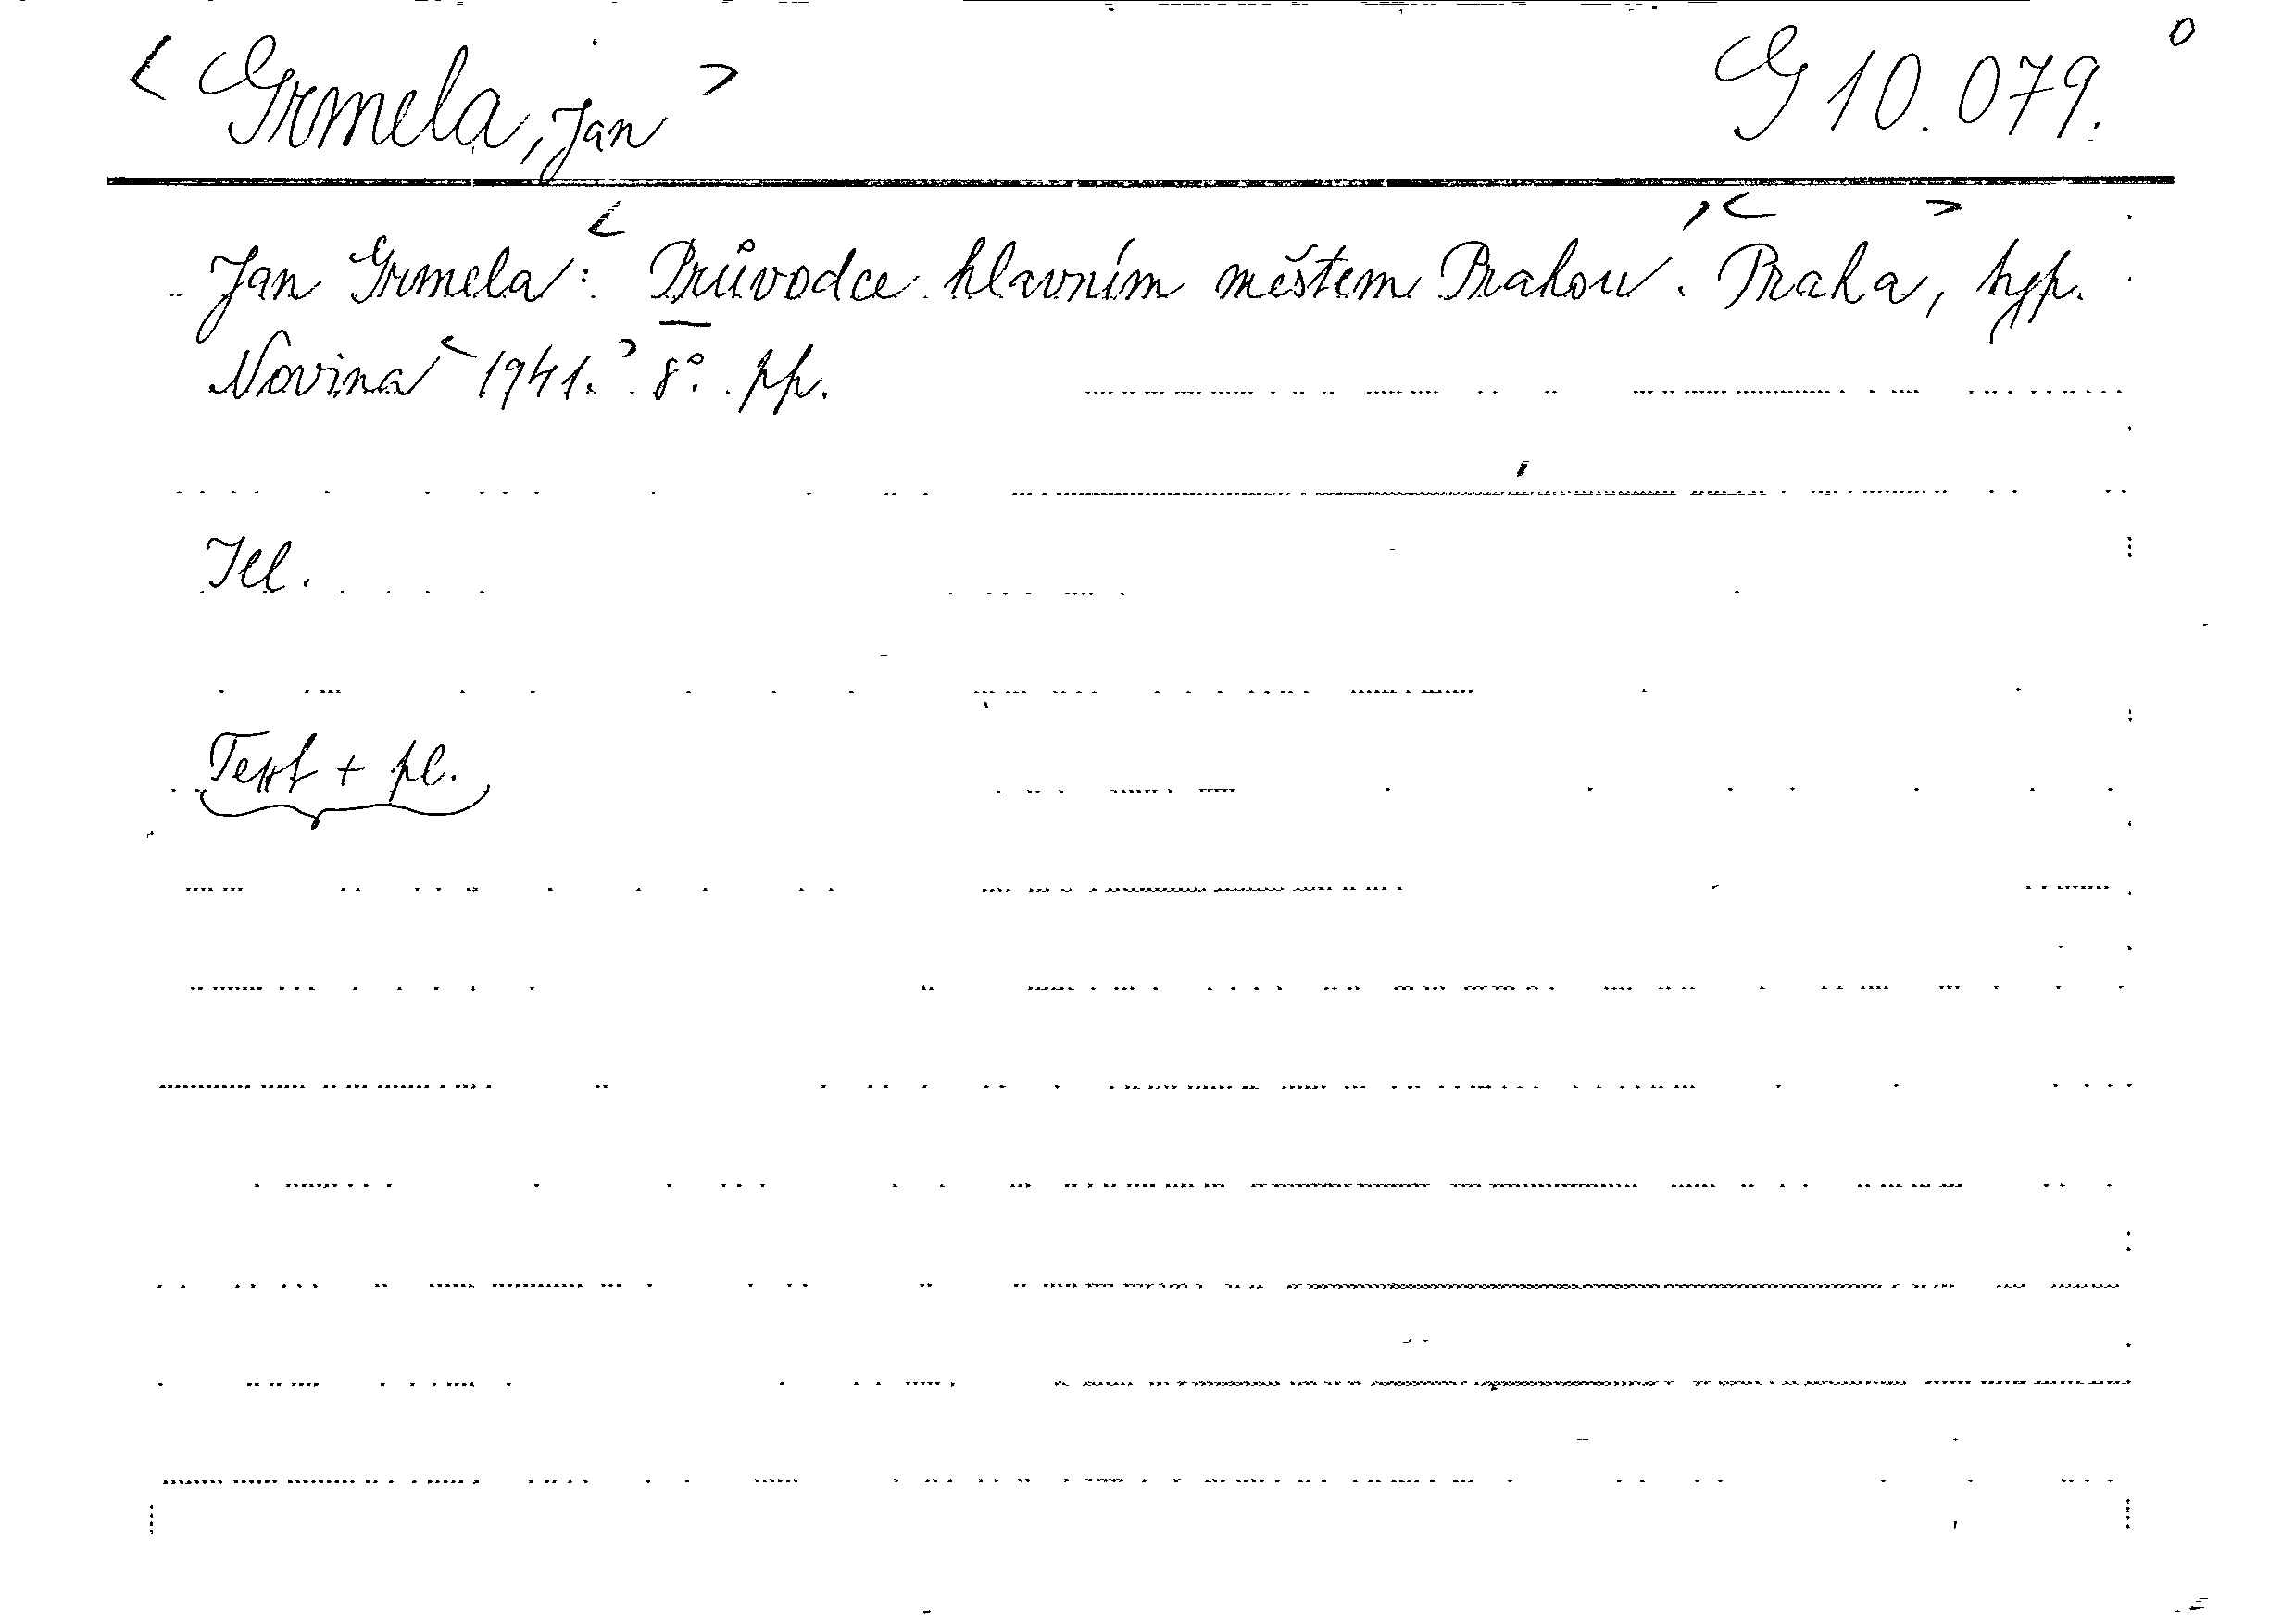 < Grmela, Jan > G 10.079. o
Jan Grmela: < Průvodce hlavním městem Prahou. > < Praha, > typ.
Novina < 1941. > 8°. pp.
Ill.
Text + pl.